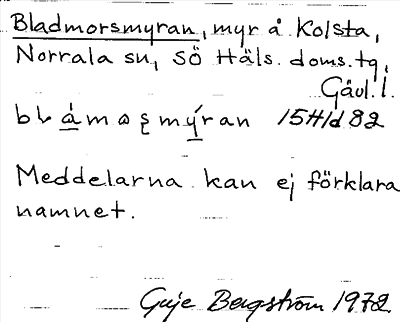 Bladmorsmyran, myr å Kolsta,
Norrala sn, SÖ Häls. doms. tg,
Gävl. l.
15H1d 82
Meddelarna kan ej förklara
namnet.
Bergström 1972